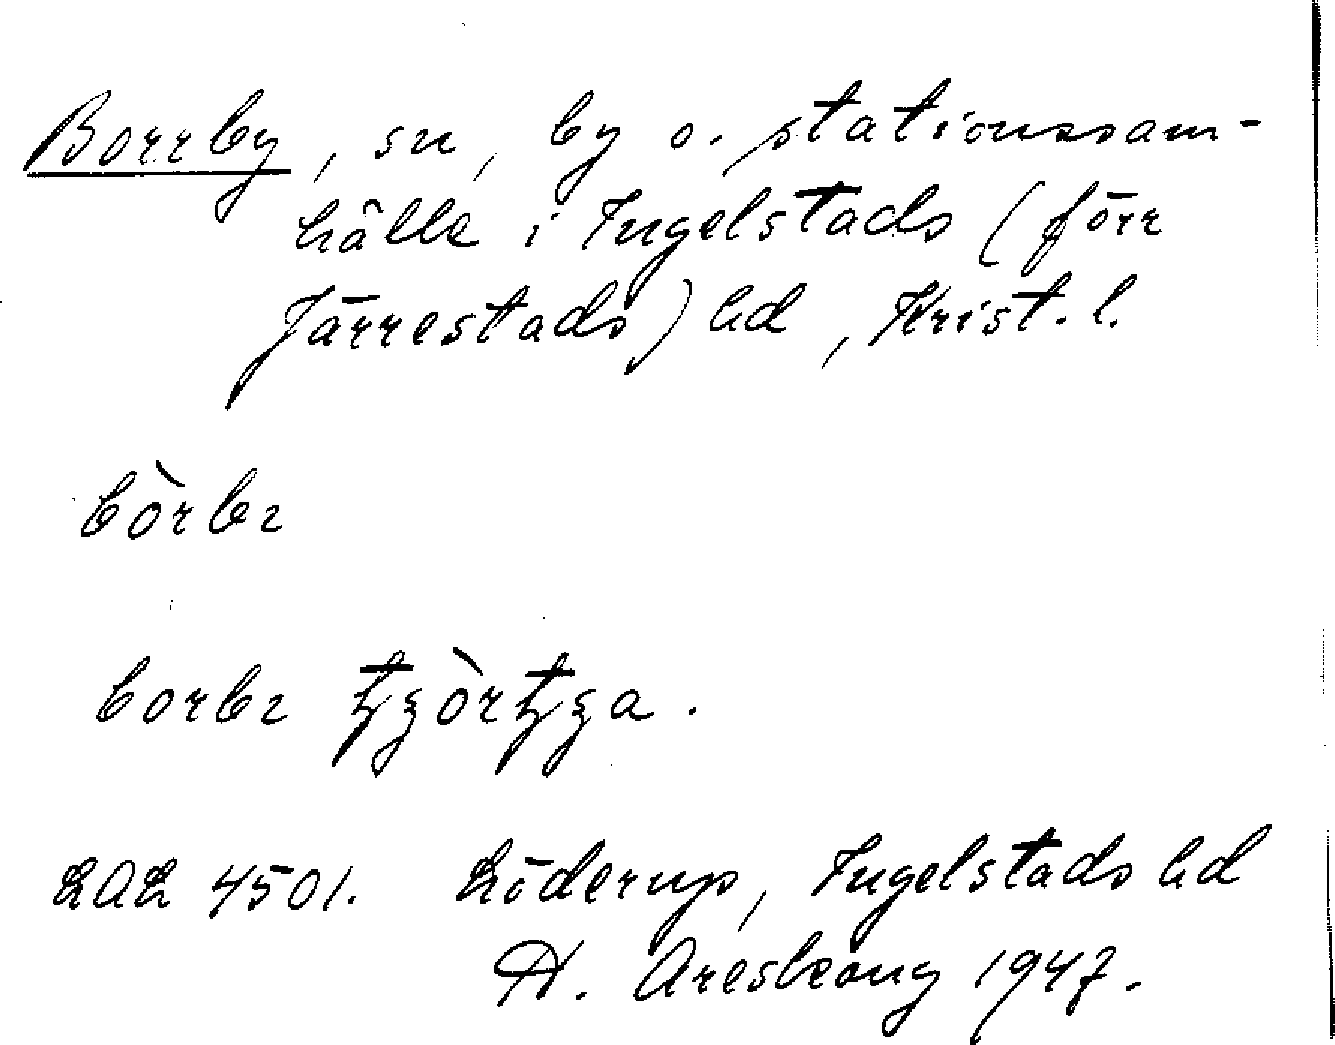 Borrby, sn, by o. stationssam-
hälle i Ingelstads (förr
Järrestads) hd, Krist. l.
bòrbɪ
borbɪ
LAL 4501. Löderup, Ingelstads hd
A. Areskoug 1947.